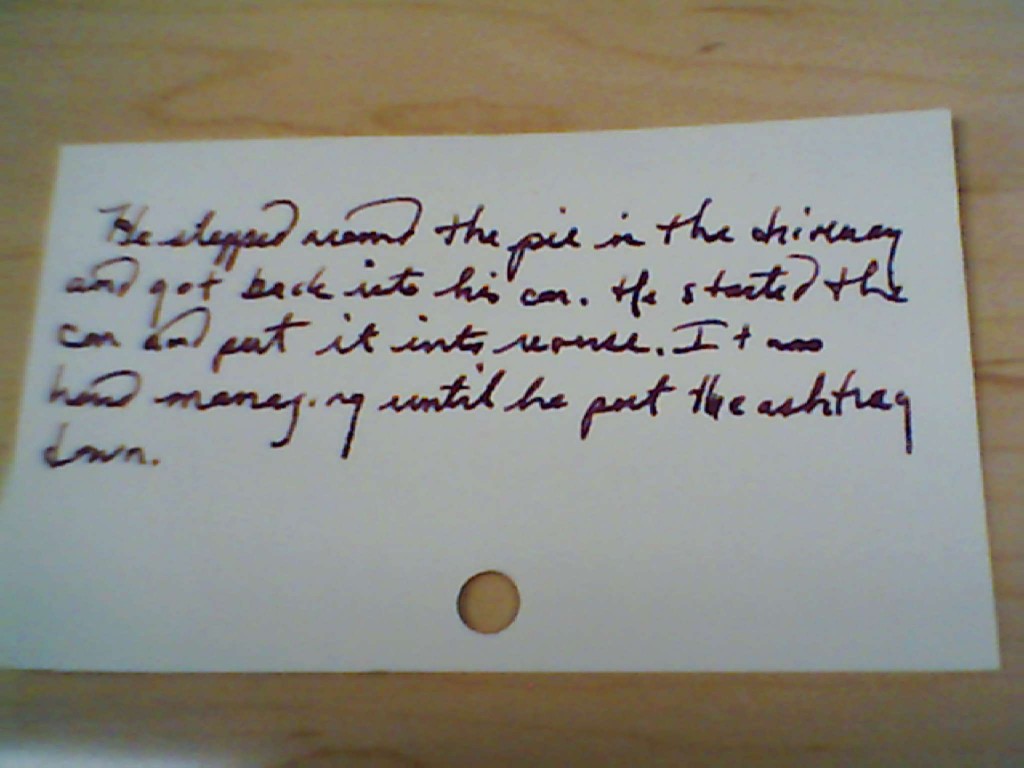 He stepped around the pie in the driveway
and got back into his car. He started the
car and put it into reverse. It was
hard managing until he put the ashtray
down.